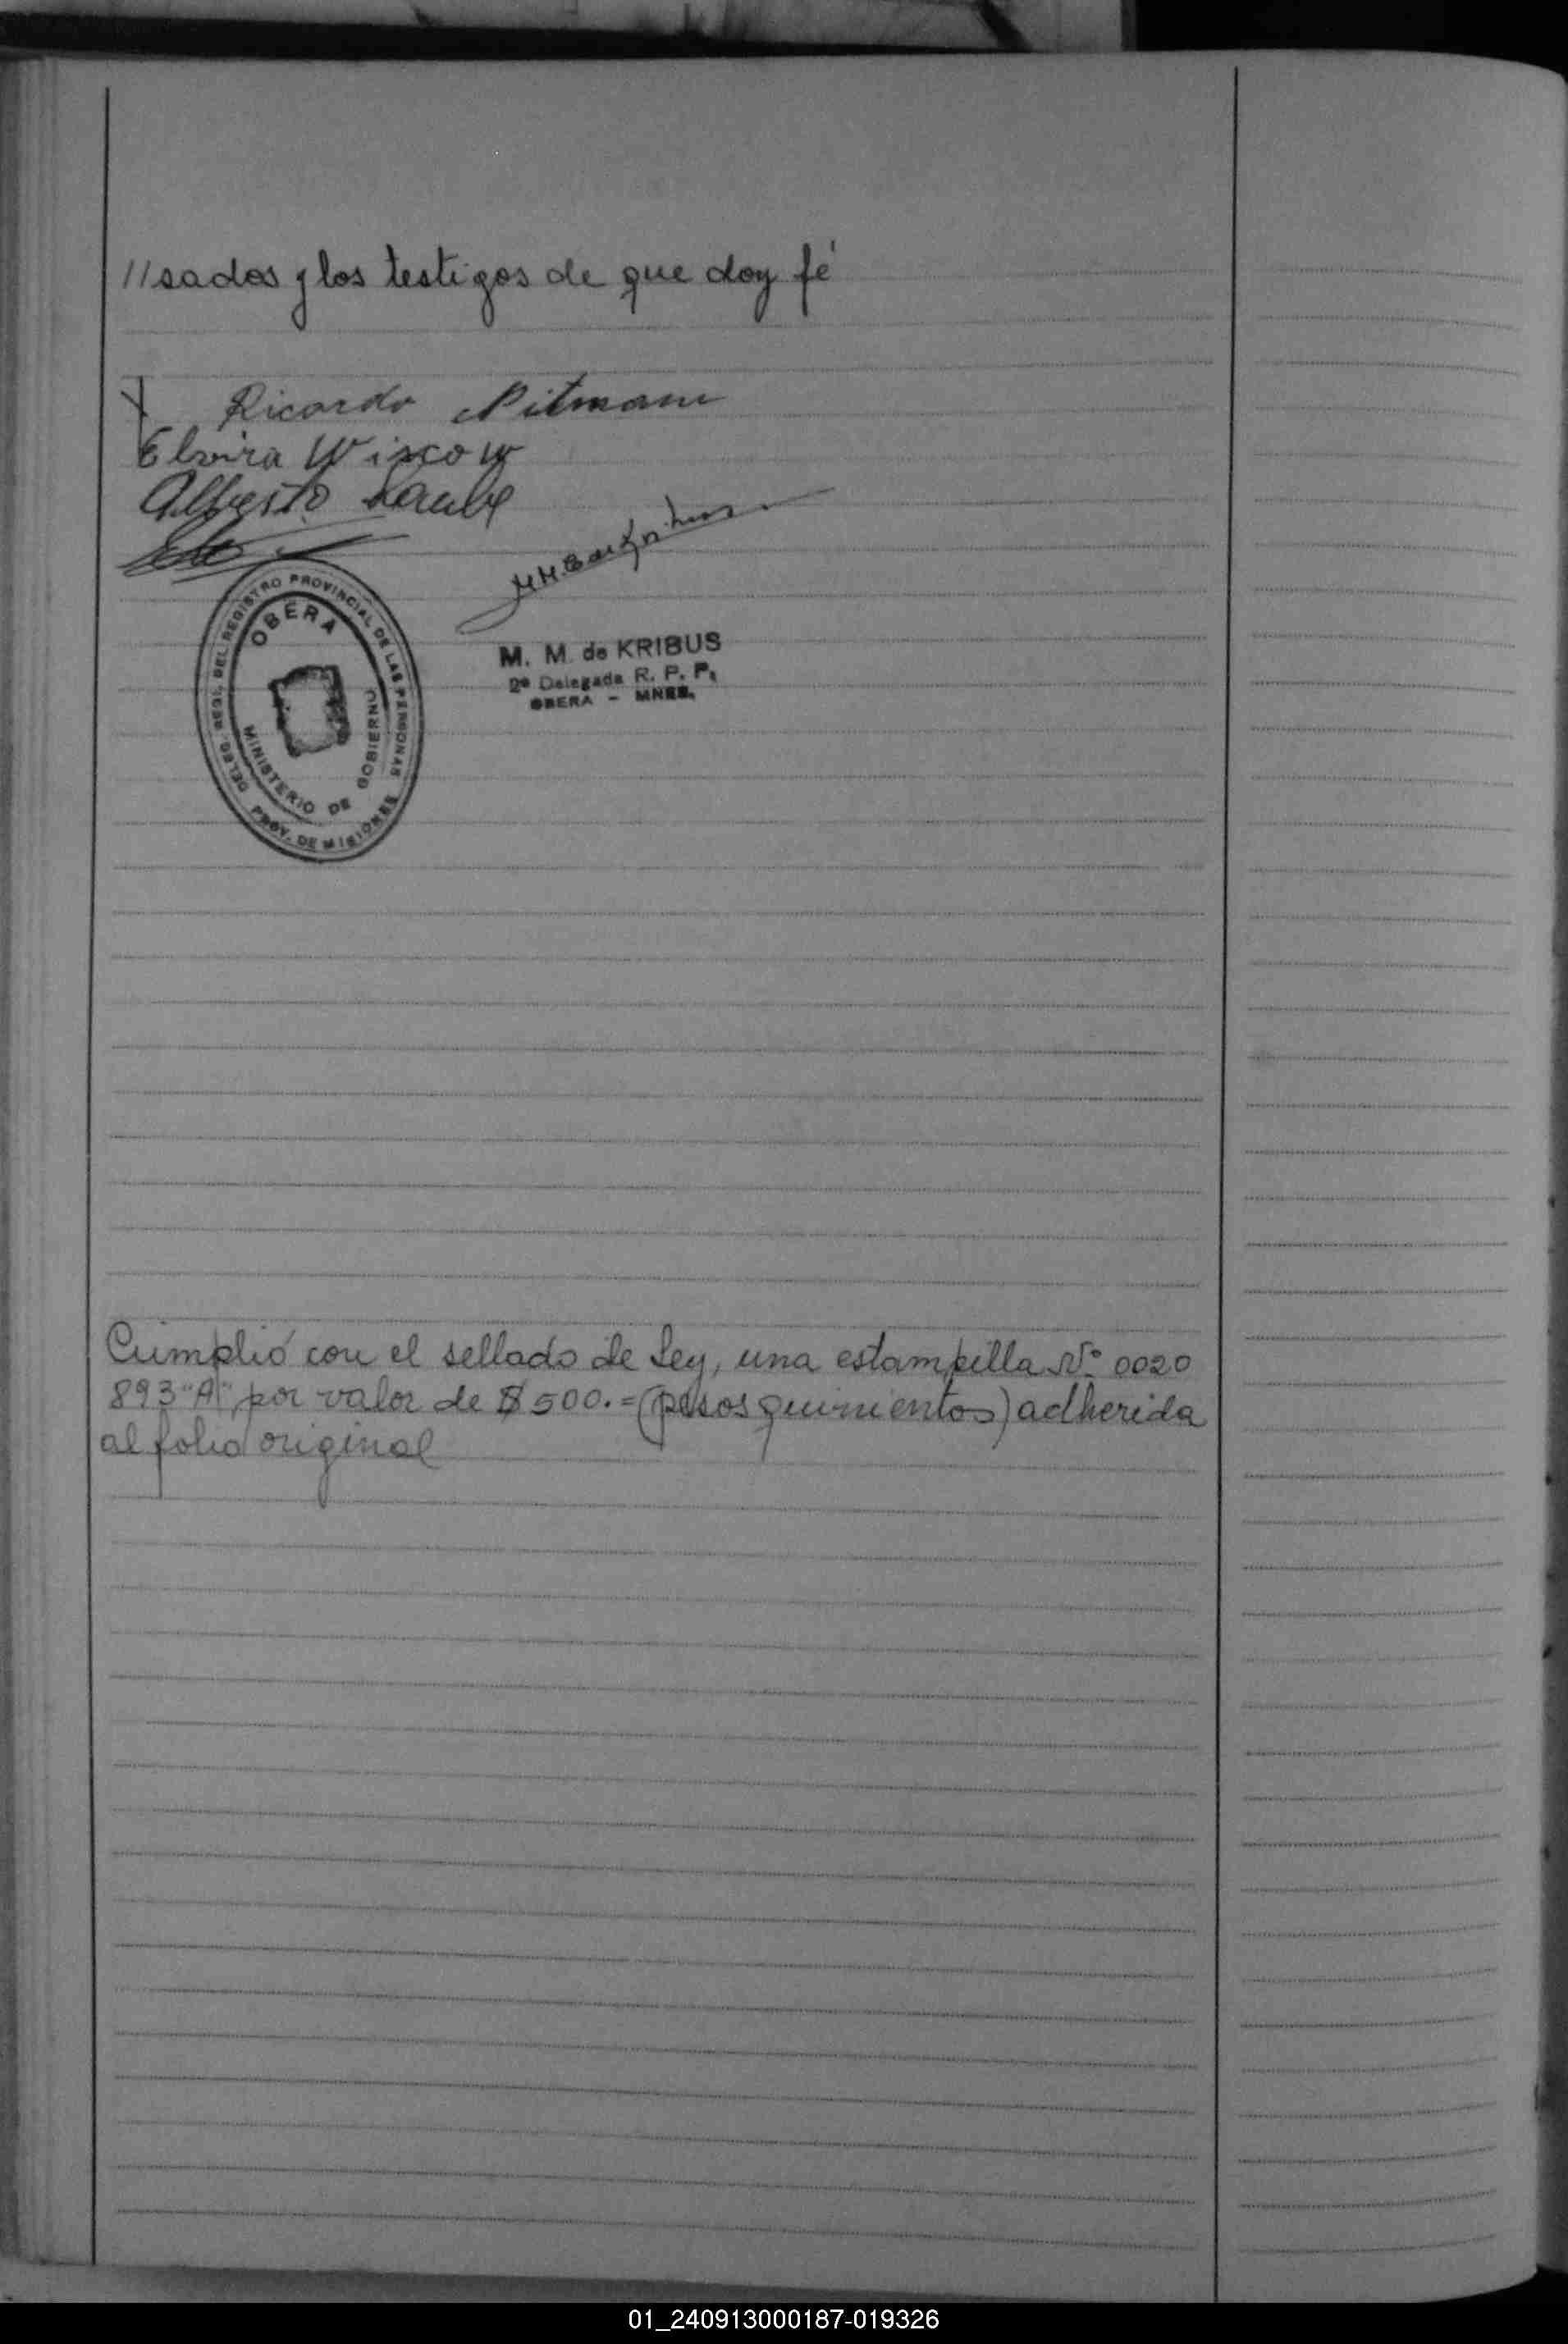 //sados y los testigos de que doy fé
Ricardo Pitmann
Elvira Wiscow
Alberto
DELEG. REGL. DEL REGISTRO PROVINCIAL DE LAS PERSONAS
OBERA
MINISTERIO DE GOBIERNO
PROV. DE MISIONES
M. M. de KRIBUS
2ª Delegada R. P. P.
OBERA - MNES.
Cumplió con el sellado de Ley, una estampilla Nº 0020
893 "A", por valor de $ 500.= (pesos quinientos) adherida
al folio original
01_240913000187-019326